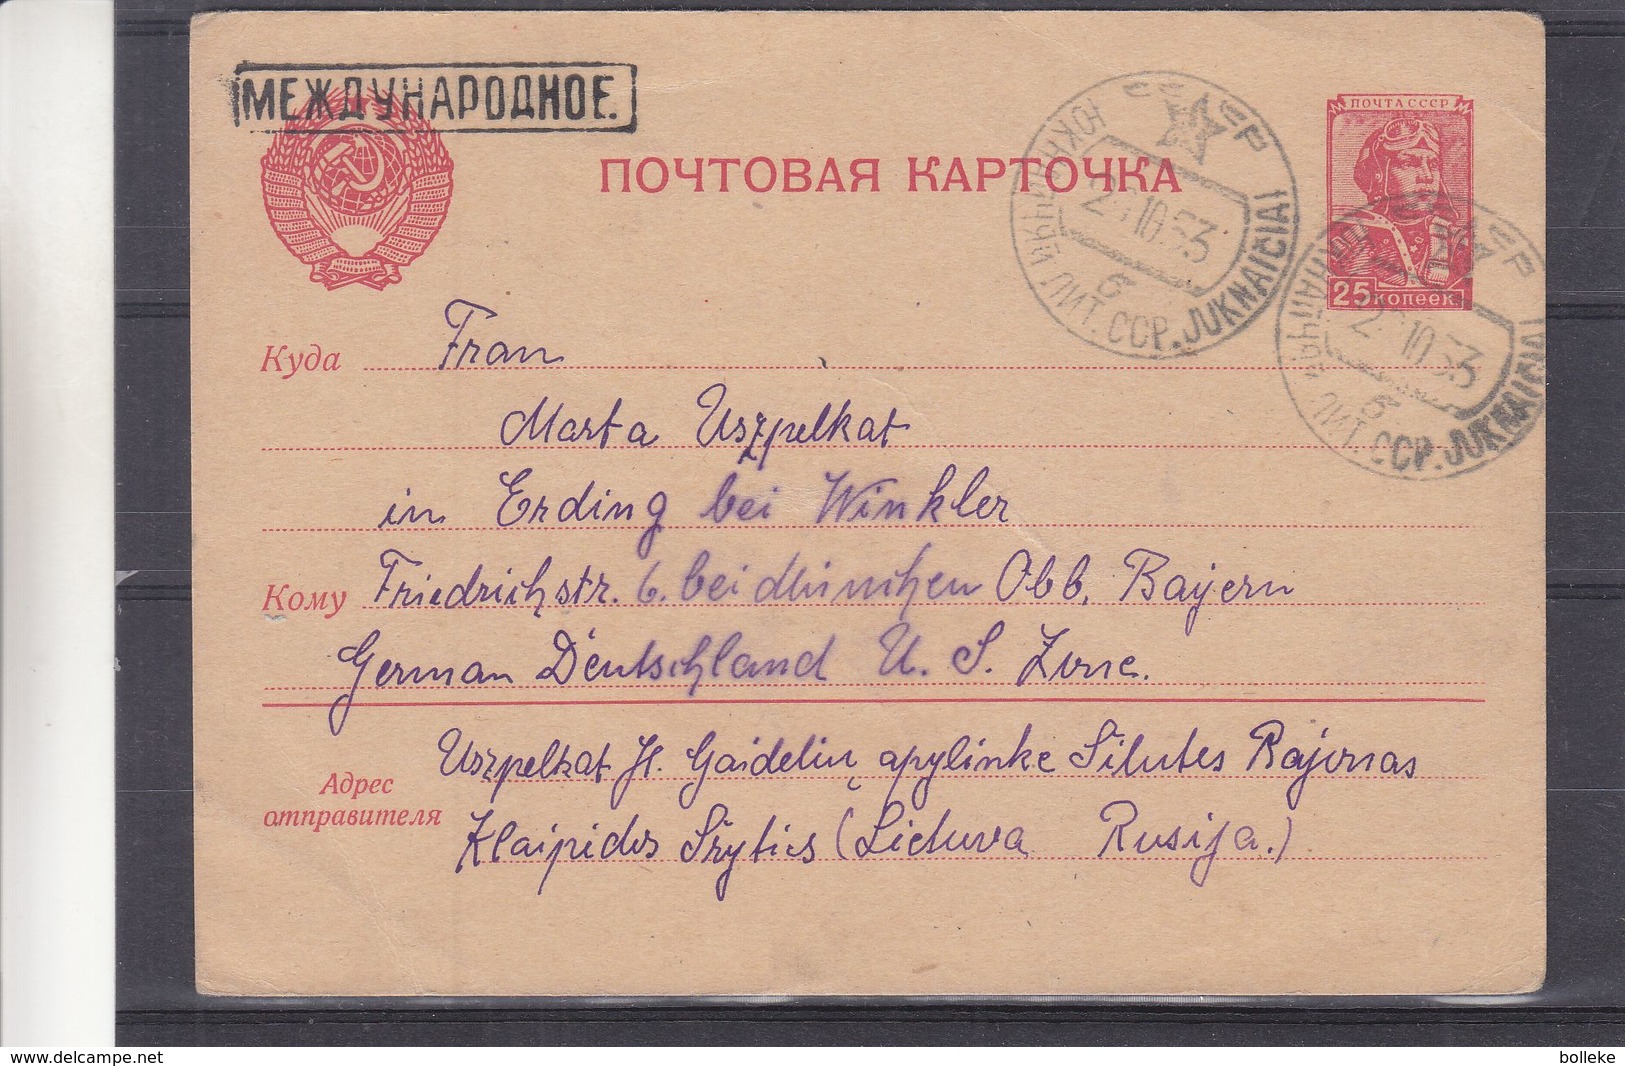 МЕЖДУНАРОДНОЕ.
ПОЧТОВАЯ КАРТОЧКА
ПОЧТА СССР
25 КОПЕЕК
ЛИТ. ССР. JUKNAIČIAI
10.53
б
ЛИТ. ССР. JUKNAIČIAI
10.53
б
Куда
Frau
Marta Uszpelkat
in Erding bei Winkler
Кому
Friedrichstr. 6. bei München Obb. Bayern
German Deutschland U. S. Zone.
Адрес
отправителя
Uszpelkat H. Gaidelių apylinke Silutes Rajonas
Klaipidos Srytis (Lietuva Rusija.)
delcampe.net
bolleke